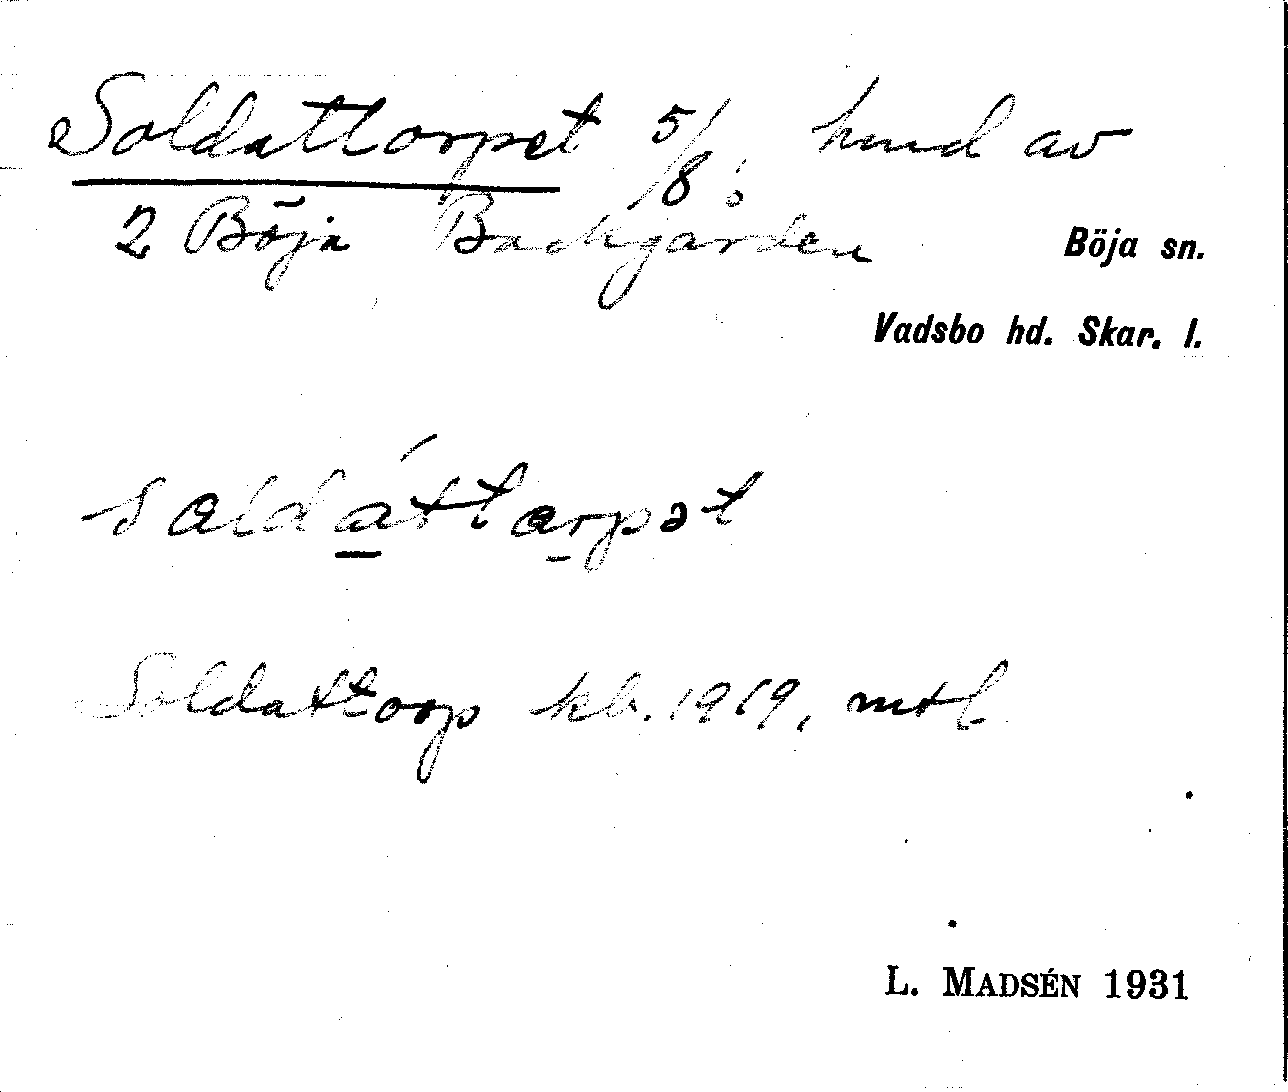 Soldattorpet 5/8: hmd av
2 Böja Backgården
Böja sn.
Vadsbo hd. Skar. l.
saldáttarpət
Soldattorp kb. 1919, mtl
L. MADSÉN 1931